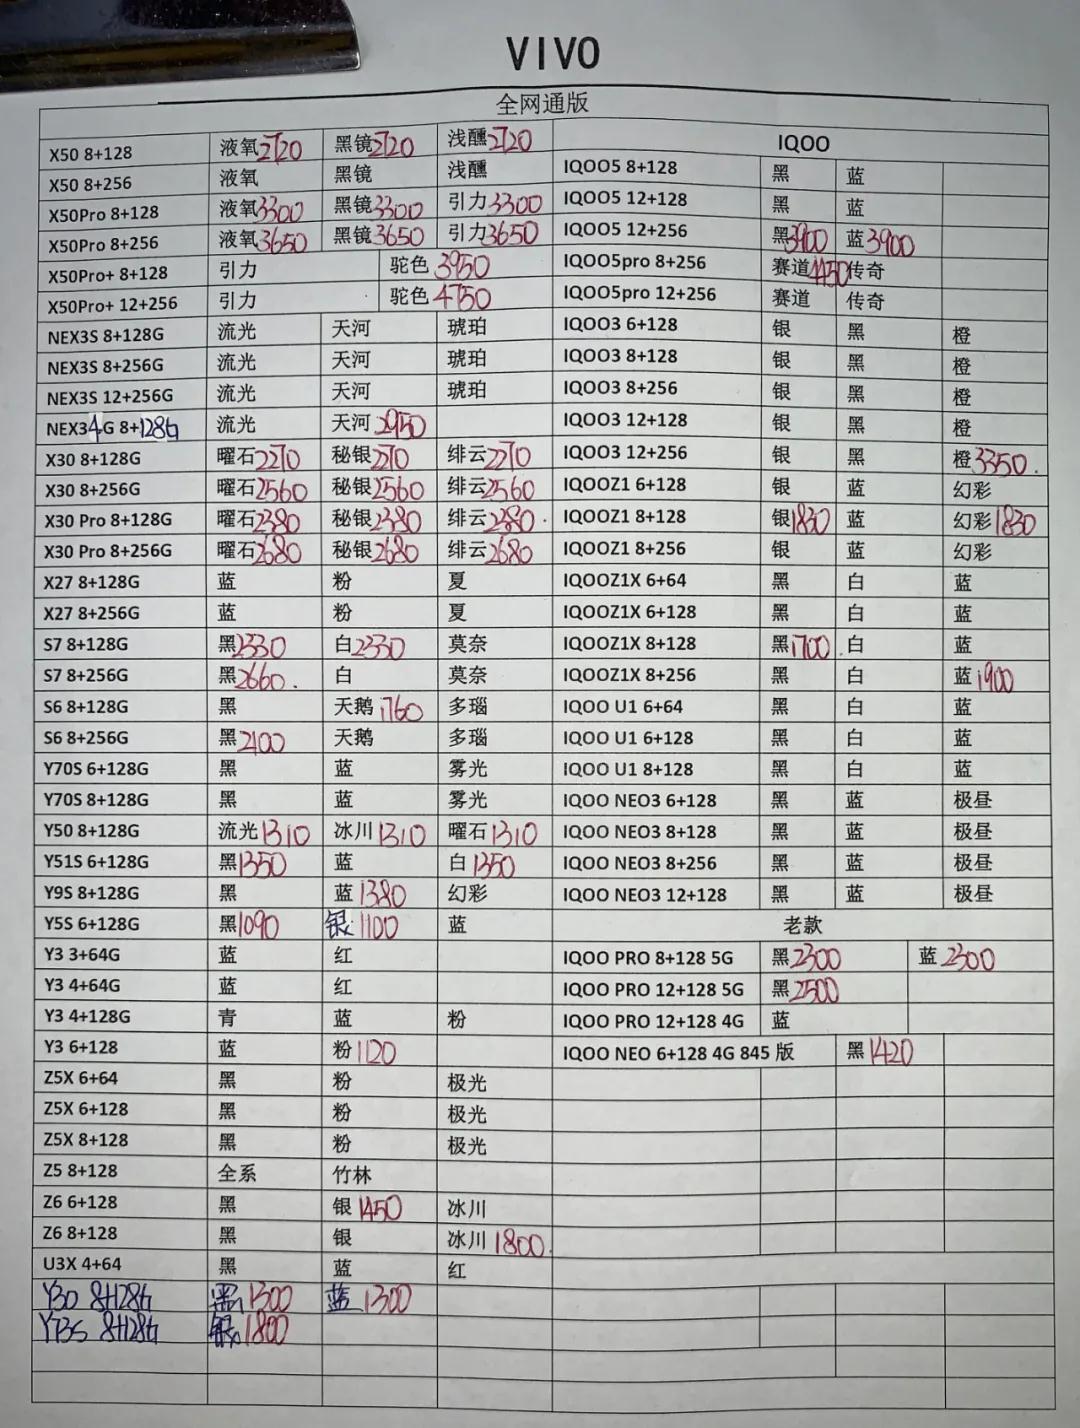 VIVO
全网通版
X50 8+128 液氧2720 黑镜2720 浅醺2720 IQOO
X50 8+256 液氧 黑镜 浅醺 IQOO5 8+128 黑 蓝
X50Pro 8+128 液氧3300 黑镜3300 引力3300 IQOO5 12+128 黑 蓝
X50Pro 8+256 液氧3650 黑镜3650 引力3650 IQOO5 12+256 黑3900 蓝3900
X50Pro+ 8+128 引力 驼色3950 IQOO5pro 8+256 赛道4450传奇
X50Pro+ 12+256 引力 驼色4750 IQOO5pro 12+256 赛道 传奇
NEX3S 8+128G 流光 天河 琥珀 IQOO3 6+128 银 黑 橙
NEX3S 8+256G 流光 天河 琥珀 IQOO3 8+128 银 黑 橙
NEX3S 12+256G 流光 天河 琥珀 IQOO3 8+256 银 黑 橙
NEX34G 8+128G 流光 天河2950 IQOO3 12+128 银 黑 橙
X30 8+128G 曜石2270 秘银2270 绯云2270 IQOO3 12+256 银 黑 橙3350.
X30 8+256G 曜石2560 秘银2560 绯云2560 IQOOZ1 6+128 银 蓝 幻彩
X30 Pro 8+128G 曜石2380 秘银2380 绯云2380. IQOOZ1 8+128 银1830 蓝 幻彩1830
X30 Pro 8+256G 曜石2680 秘银2680 绯云2680 IQOOZ1 8+256 银 蓝 幻彩
X27 8+128G 蓝 粉 夏 IQOOZ1X 6+64 黑 白 蓝
X27 8+256G 蓝 粉 夏 IQOOZ1X 6+128 黑 白 蓝
S7 8+128G 黑2330 白2330 莫奈 IQOOZ1X 8+128 黑1700. 白 蓝
S7 8+256G 黑2660. 白 莫奈 IQOOZ1X 8+256 黑 白 蓝1900
S6 8+128G 黑 天鹅1760 多瑙 IQOO U1 6+64 黑 白 蓝
S6 8+256G 黑2100 天鹅 多瑙 IQOO U1 6+128 黑 白 蓝
Y70S 6+128G 黑 蓝 雾光 IQOO U1 8+128 黑 白 蓝
Y70S 8+128G 黑 蓝 雾光 IQOO NEO3 6+128 黑 蓝 极昼
Y50 8+128G 流光1310 冰川1310 曜石1310 IQOO NEO3 8+128 黑 蓝 极昼
Y51S 6+128G 黑1350 蓝 白1350 IQOO NEO3 8+256 黑 蓝 极昼
Y9S 8+128G 黑 蓝1380 幻彩 IQOO NEO3 12+128 黑 蓝 极昼
Y5S 6+128G 黑1090 银1100 蓝 老款
Y3 3+64G 蓝 红 IQOO PRO 8+128 5G 黑2300 蓝2300
Y3 4+64G 蓝 红 IQOO PRO 12+128 5G 黑2500
Y3 4+128G 青 蓝 粉 IQOO PRO 12+128 4G 蓝
Y3 6+128 蓝 粉1120 IQOO NEO 6+128 4G 845 版 黑1420
Z5X 6+64 黑 粉 极光
Z5X 6+128 黑 粉 极光
Z5X 8+128 黑 粉 极光
Z5 8+128 全系 竹林
Z6 6+128 黑 银1450 冰川
Z6 8+128 黑 银 冰川1800.
U3X 4+64 黑 蓝 红
Y30 8+128G 黑1300 蓝1300
Y73S 8+128G 银1800